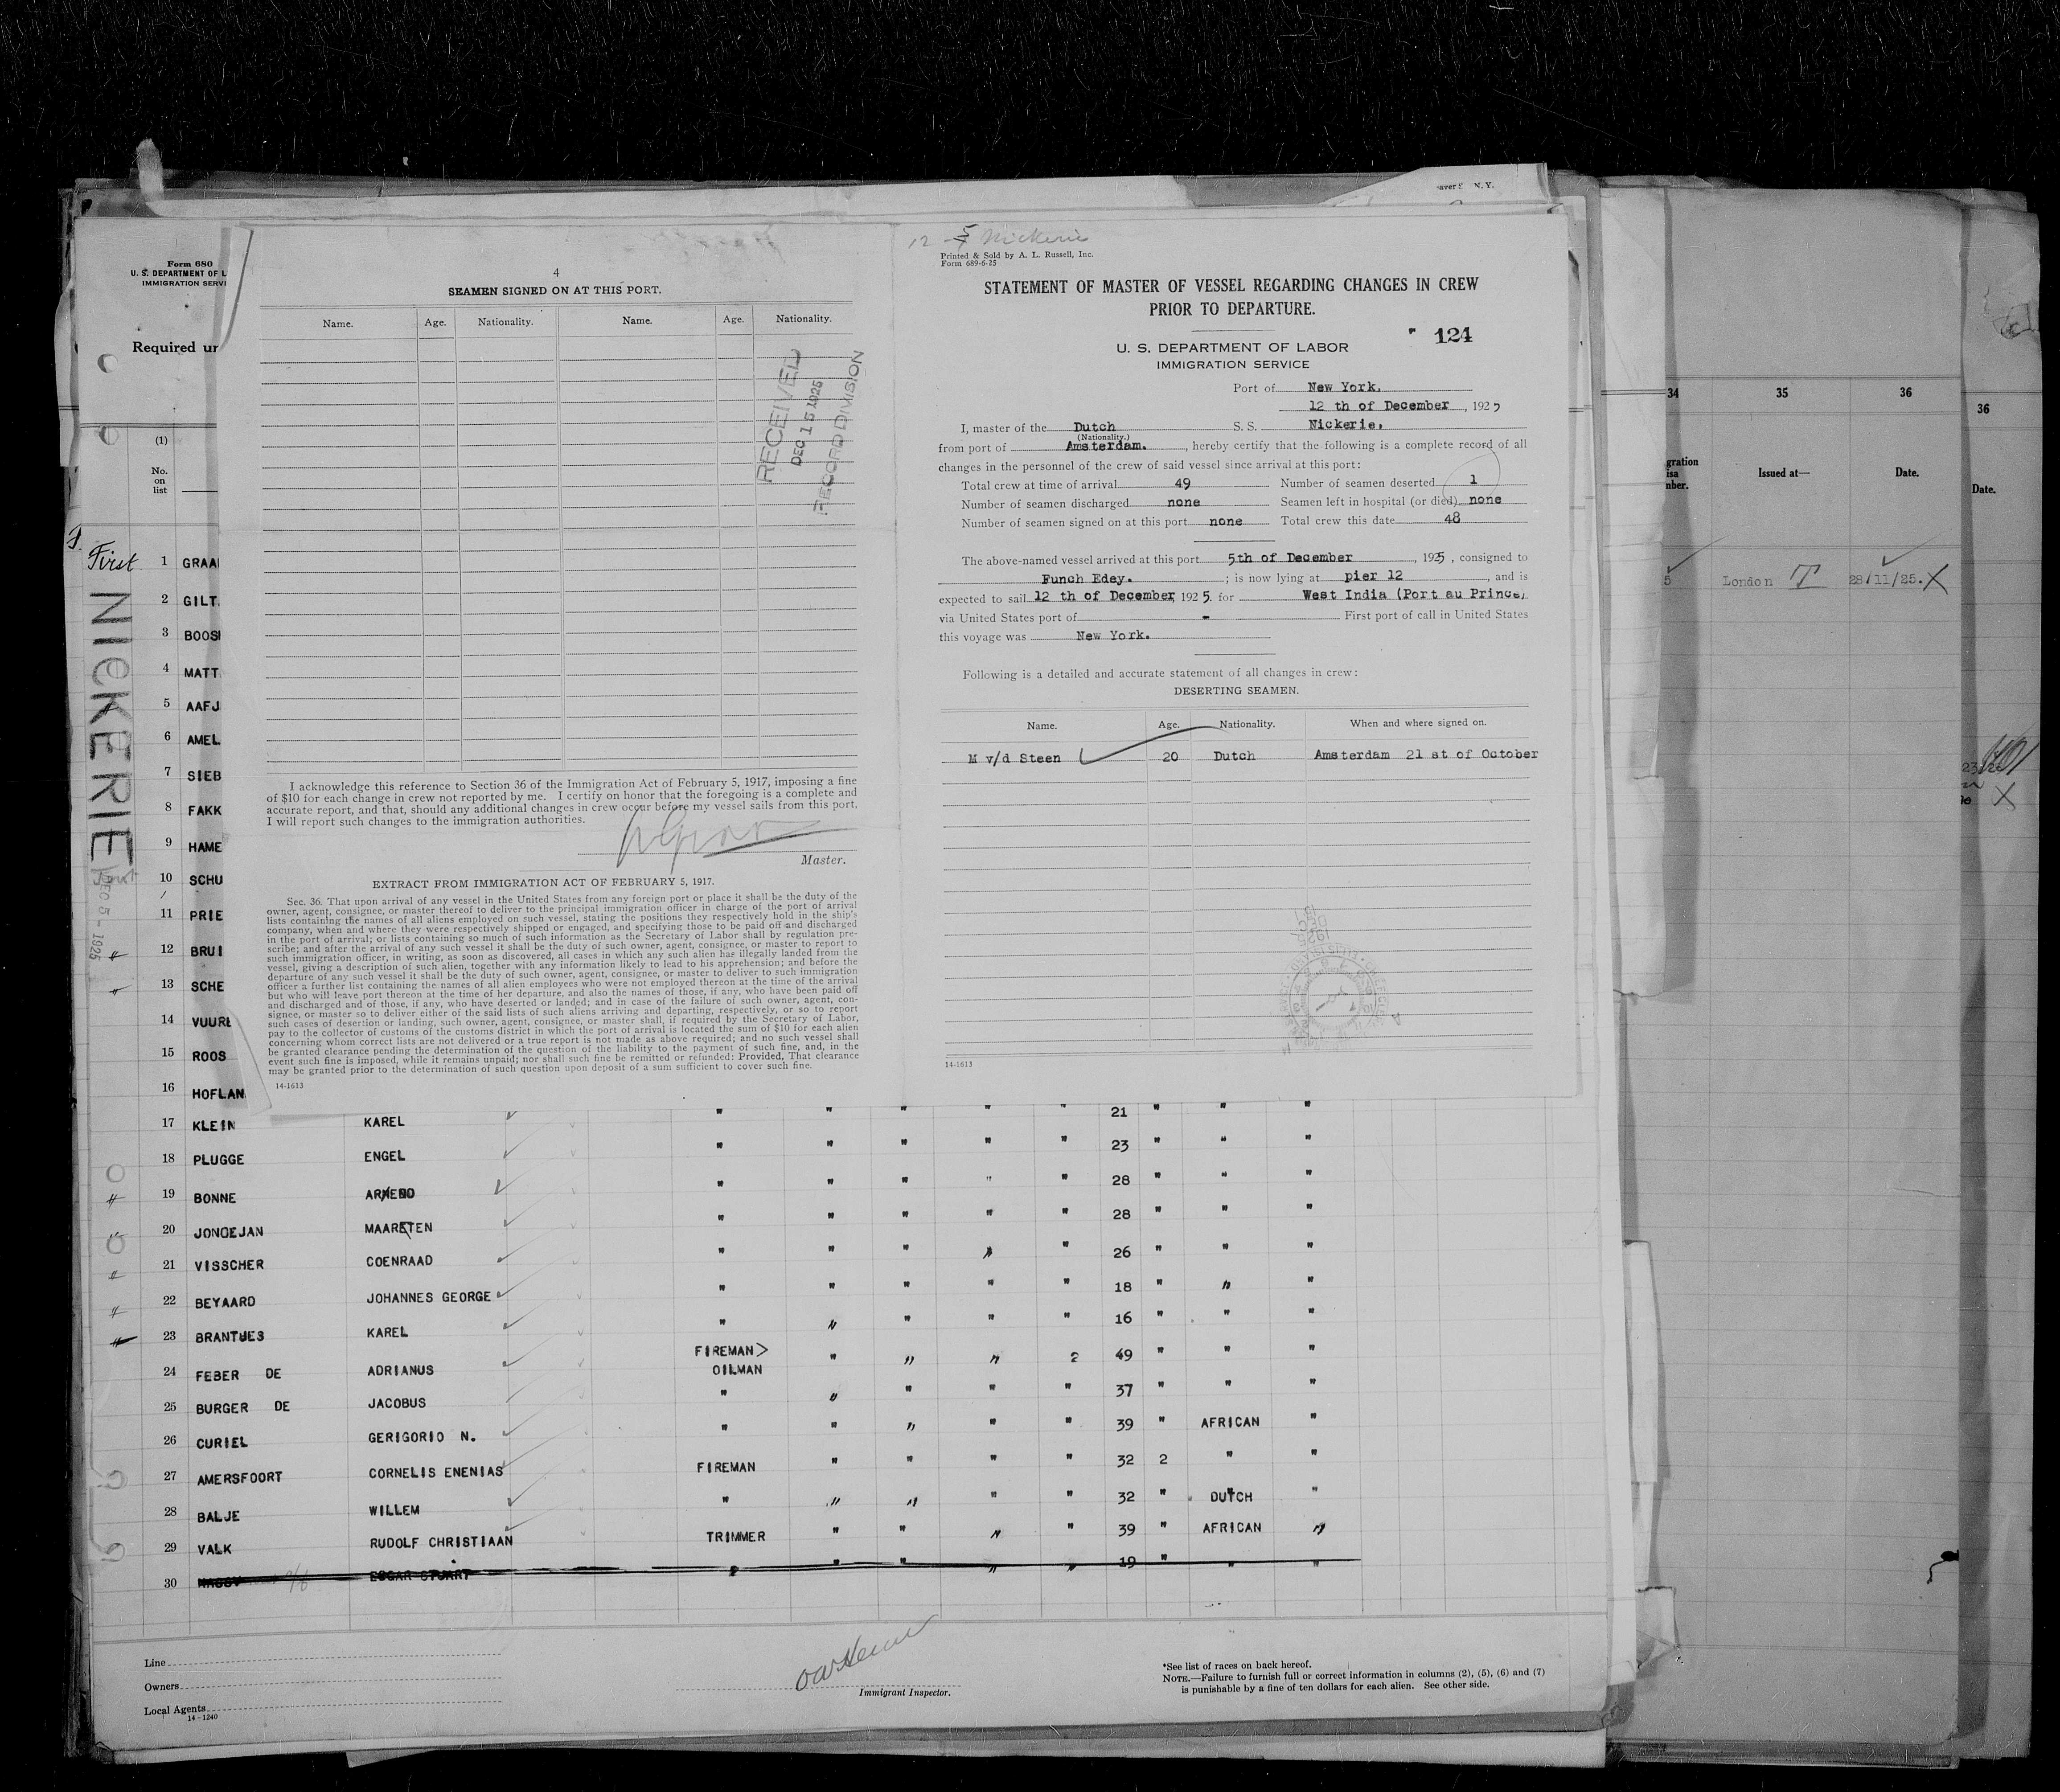 aver S N.Y.
Form 680
U. S. DEPARTMENT OF L
IMMIGRATION SERVI
Required un
(1)
No.
on
list
First
NICKERIE
DEC 5 - 1925
1 GRAA
2 GILT
3 BOOS
4 MATT
5 AAFJ
6 AMEL
7 SIEB
8 FAKK
9 HAME
10 SCHU
11 PRIE
12 BRUI
13 SCHE
14 VUUR
15 ROOS
16 HOFLAN
4
SEAMEN SIGNED ON AT THIS PORT.
Name. Age. Nationality. Name. Age. Nationality.
RECEIVED
DEC 15 1925
RECORD DIVISION
I acknowledge this reference to Section 36 of the Immigration Act of February 5, 1917, imposing a fine
of $10 for each change in crew not reported by me. I certify on honor that the foregoing is a complete and
accurate report, and that, should any additional changes in crew occur before my vessel sails from this port,
I will report such changes to the immigration authorities.
Master.
EXTRACT FROM IMMIGRATION ACT OF FEBRUARY 5, 1917.
Sec. 36. That upon arrival of any vessel in the United States from any foreign port or place it shall be the duty of the
owner, agent, consignee, or master thereof to deliver to the principal immigration officer in charge of the port of arrival
lists containing the names of all aliens employed on such vessel, stating the positions they respectively hold in the ship's
company, when and where they were respectively shipped or engaged, and specifying those to be paid off and discharged
in the port of arrival; or lists containing so much of such information as the Secretary of Labor shall by regulation pre-
scribe; and after the arrival of any such vessel it shall be the duty of such owner, agent, consignee, or master to report to
such immigration officer, in writing, as soon as discovered, all cases in which any such alien has illegally landed from the
vessel, giving a description of such alien, together with any information likely to lead to his apprehension; and before the
departure of any such vessel it shall be the duty of such owner, agent, consignee, or master to deliver to such immigration
officer a further list containing the names of all alien employees who were not employed thereon at the time of the arrival
but who will leave port thereon at the time of her departure, and also the names of those, if any, who have been paid off
and discharged and of those, if any, who have deserted or landed; and in case of the failure of such owner, agent, con-
signee, or master so to deliver either of the said lists of such aliens arriving and departing, respectively, or so to report
such cases of desertion or landing, such owner, agent, consignee, or master shall, if required by the Secretary of Labor,
pay to the collector of customs of the customs district in which the port of arrival is located the sum of $10 for each alien
concerning whom correct lists are not delivered or a true report is not made as above required; and no such vessel shall
be granted clearance pending the determination of the question of the liability to the payment of such fine, and, in the
event such fine is imposed, while it remains unpaid; nor shall such fine be remitted or refunded: Provided, That clearance
may be granted prior to the determination of such question upon deposit of a sum sufficient to cover such fine.
14-1613
12 - 5 Nickerie
Printed & Sold by A. L. Russell, Inc.
Form 689-6-25
STATEMENT OF MASTER OF VESSEL REGARDING CHANGES IN CREW
PRIOR TO DEPARTURE.
124
U. S. DEPARTMENT OF LABOR
IMMIGRATION SERVICE
Port of New York.
12 th of December, 1925
I, master of the Dutch S. S. Nickerie,
(Nationality.)
from port of Amsterdam., hereby certify that the following is a complete record of all
changes in the personnel of the crew of said vessel since arrival at this port:
Total crew at time of arrival 49 Number of seamen deserted 1
Number of seamen discharged none Seamen left in hospital (or died) none
Number of seamen signed on at this port none Total crew this date 48
The above-named vessel arrived at this port 5th of December, 1925, consigned to
Funch Edey. ; is now lying at pier 12, and is
expected to sail 12 th of December, 1925. for West India (Port au Prince,
via United States port of - First port of call in United States
this voyage was New York.
Following is a detailed and accurate statement of all changes in crew:
DESERTING SEAMEN.
Name. Age. Nationality. When and where signed on.
M v/d Steen 20 Dutch Amsterdam 21 st of October
14-1613
34 35 36
gration
isa
nber. Issued at— Date.
5 London T 28/11/25. X
36
Date.
X
17 KLEIN KAREL " " " " " 21 " " "
18 PLUGGE ENGEL " " " " " 23 " " "
19 BONNE ARNEND " " " " " 28 " " "
20 JONGEJAN MAARTEN " " " " " 28 " " "
21 VISSCHER COENRAAD " " " " " 26 " " "
22 BEYAARD JOHANNES GEORGE " " " " " 18 " " "
23 BRANTJES KAREL " " " " " 16 " " "
24 FEBER DE ADRIANUS FIREMAN> OILMAN " " " 2 49 " " "
25 BURGER DE JACOBUS " " " " " 37 " " "
26 CURIEL GERIGORIO N. " " " " " 39 " AFRICAN "
27 AMERSFOORT CORNELIS ENENIAS FIREMAN " " " " 32 2 " "
28 BALJE WILLEM " " " " " 32 " DUTCH "
29 VALK RUDOLF CHRISTIAAN TRIMMER " " " " 39 " AFRICAN "
30 MASSY EDGAR STUART " " " " " 19 " " "
Line
Owners
Local Agents
14-1240
Immigrant Inspector.
*See list of races on back hereof.
NOTE.—Failure to furnish full or correct information in columns (2), (5), (6) and (7)
is punishable by a fine of ten dollars for each alien. See other side.